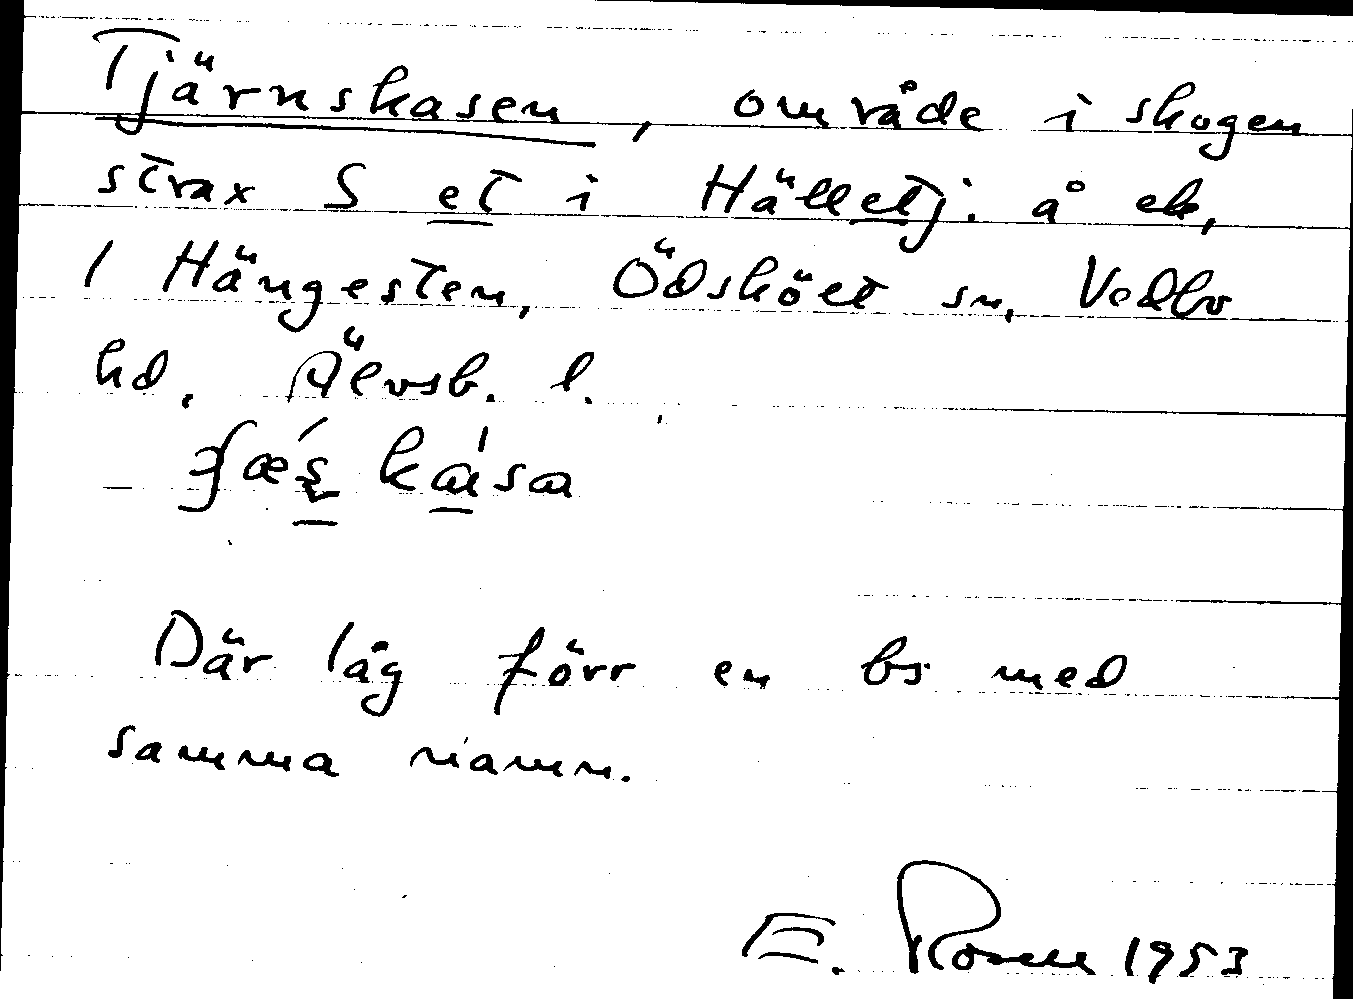 Tjärnskasen, område i skogen
strax S et i Hälletj. å ek,
1 Hängesten, Ödskölt sn, Vedbo
hd. Älvsb. l.
kasa
Där låg förr en bs med
samma namn.
E. Rosell 1953